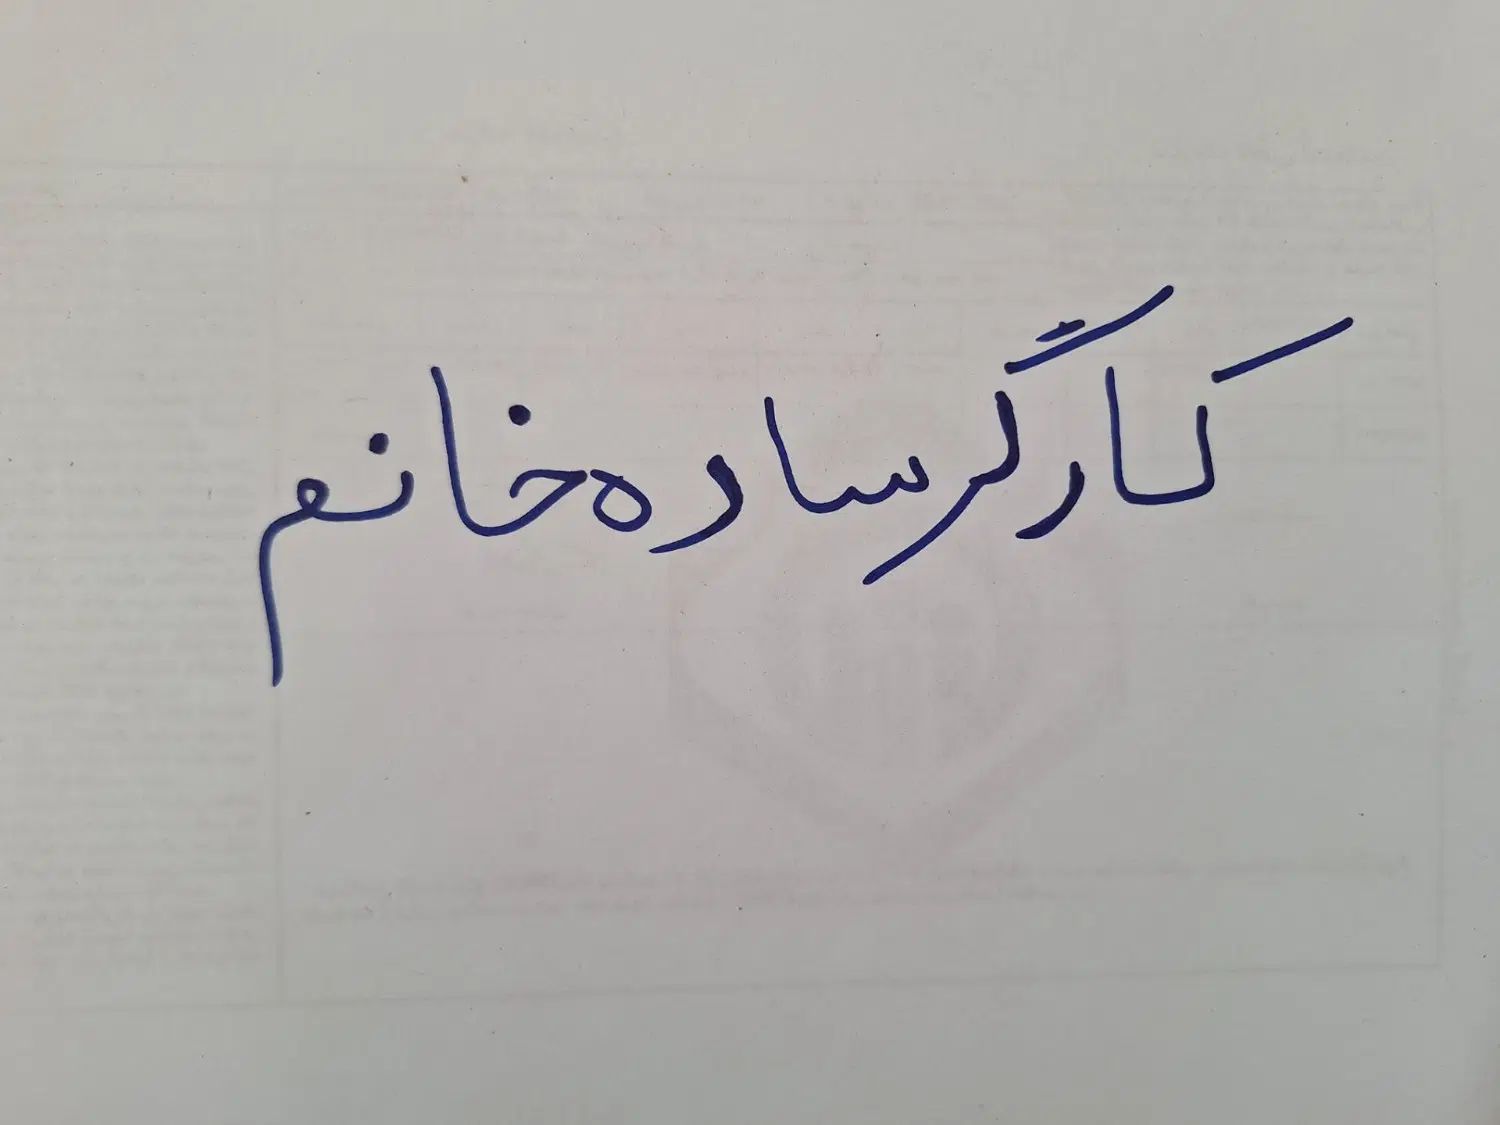 کارگر ساده خانم